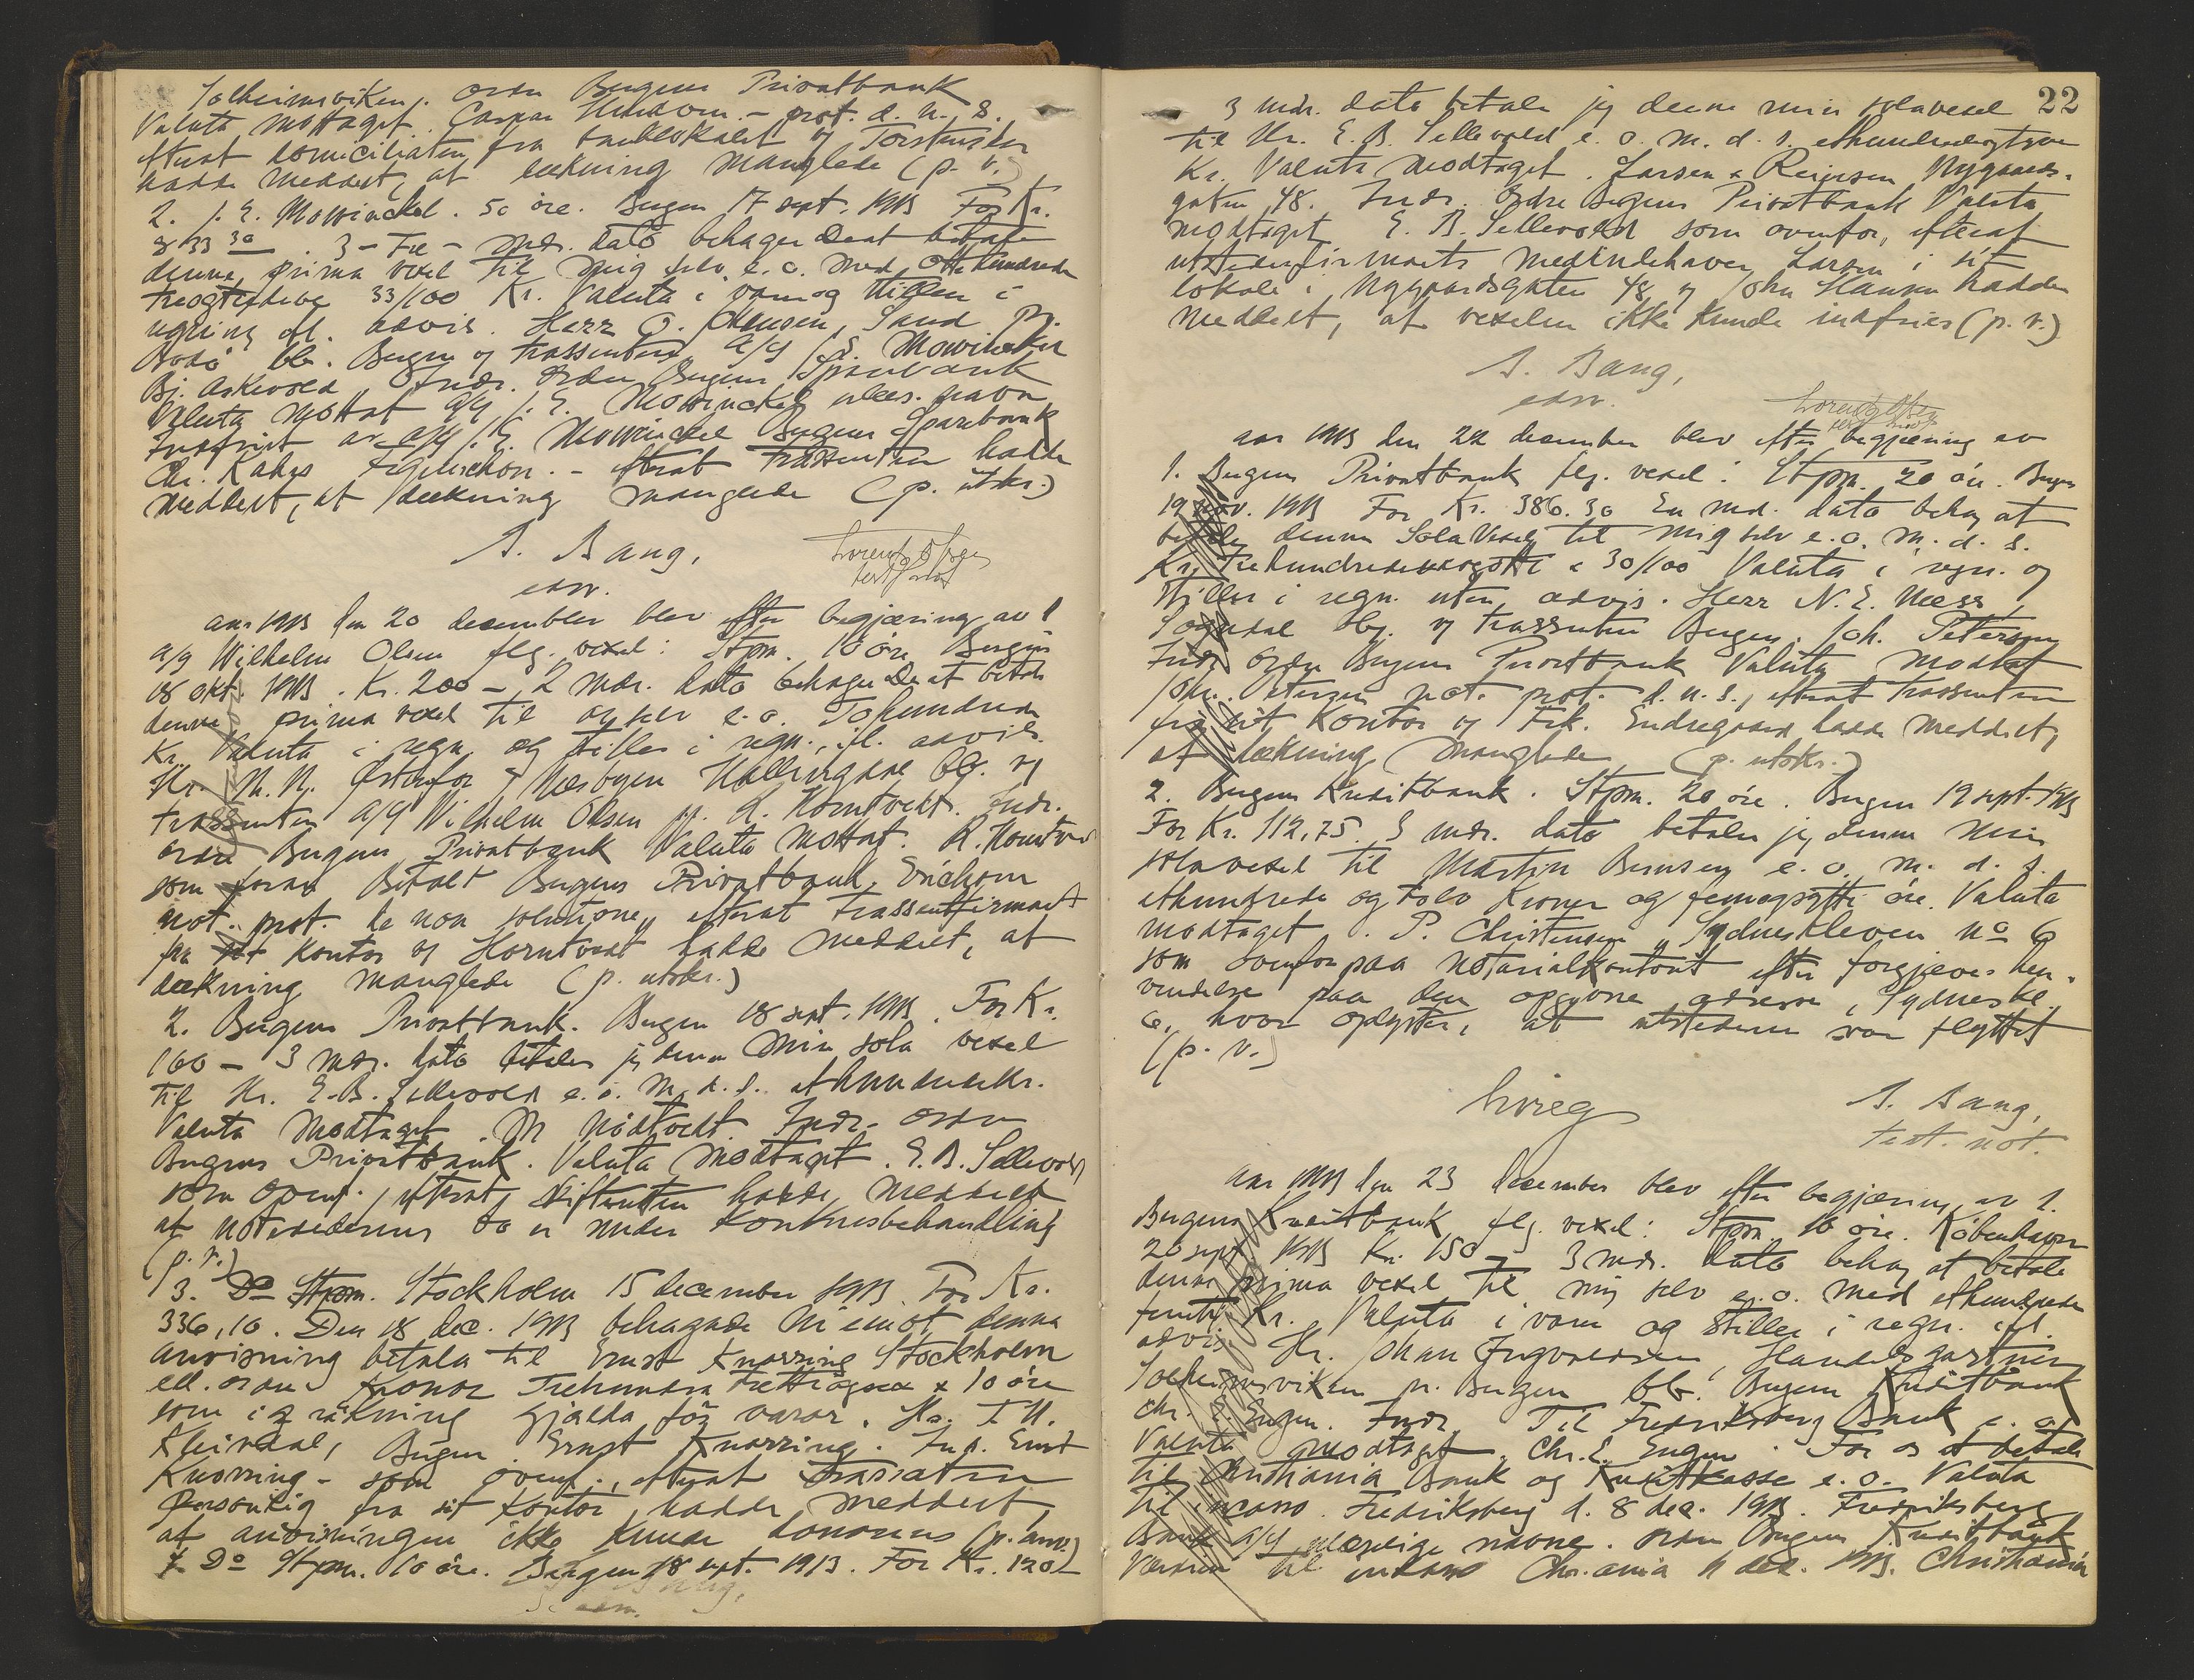 Solheimsviken. ordre Bergens Privatbank
Valuta mottaget. Caspar - prot. d. n. s.
efterat domiciliaten fra banklokalet og Torstensen
hadde meddelt, at dækning manglede (p. v.)
2. J. E. Mowinckel. 50 øre. Bergen 17 sept. 1913 For Kr.
833 30. 3 - Tre - mdr. dato behager De at betale
denne prima vexel til mig selv e. o. med Ottehundrede
treogtredive 33/100 Kr. Valuta i varer og stilles i
regning ifl. advis. Herr O. Clausen, Sand pr.
Bodø bb. Bergen og trassenten A/S J. E. Mowinckel
Bj. Askevold, Indr. ordre Bergens Sparebank
Valuta mottat A/S J. E. Mowinckel ulæs. navn
Indfriet av A/S J. E. Mowinckel Bergens Sparebank
Chr. Kahrs - efterat trassenten hadde
meddelt, at dækning manglede (p. utskr.)
A. Bang,
edsv.
Lorentz
test. not.
aar 1913 den 20 december blev efter begjæring av 1
A/S Wilhelm Olsen flg. vexel: Stpm. 10 øre Bergen
18 okt. 1913. Kr. 200 - 2 mdr. dato behager De at betale
denne prima vexel til os selv e. o. Tohundrede
Kr. Valuta i regn. og stilles i regn. ifl. advis.
Hr. N. N. Østenfor Næsbyen Hallingdal bb. og
trassenten A/S Wilhelm Olsen pp. R. Horntvedt. Indr.
ordre Bergens Privatbank Valuta mottat. R. Horntvedt
som foran Betalt Bergens Privatbank, Erichsen
not. prot. de non solutione, efterat trassentfirmaet
fra sit kontor og Horntvedt hadde meddelt, at
dækning manglede (p. utskr.)
2. Bergens Privatbank. Bergen 18 sept. 1913. For Kr.
100 - 3 mdr. dato betaler jeg denne min sola vexel
til Hr. E. B. Sellevold e. o. m. d. s. ethundredekr.
Valuta modtaget. M Nødtvedt. Indr. ordre
Bergens Privatbank. Valuta modtaget. E. B. Sellevold
som ovenf., efterat hadde meddelt
at utstederens bo er under konkursbehandling
(p. v.)
3. Do Stpm. Stockholm 15 december 1913. For Kr.
336,10. Den 18 dec. 1913 behagade Ni emot denna
anvisning betala til Ernst Knorring Stockholm
ell. order Kronor Trehundra trettiosex & 10 öre
som i räkning gjälda för varor. Hr. T. H.
Kleivdal, Bergen. Ernst Knorring. Ind. Ernst
Knorring - som ovenf., efterat trassaten
personlig fra sit kontor hadde meddelt,
at anvisningen ikke kunde honoreres (p. anv.)
4. Do Stpm. 10 øre. Bergen 18 sept. 1913. For Kr. 120 -
A. Bang,
edsv.
22
3 mdr. dato betaler jeg denne min solavexel
til Hr. E. B. Sellevold e. o. m. d. s. ethundredeogtyve
Kr. Valuta modtaget. Larsen & Reiersen Nygaards-
gaten 48. Indr. Ordre Bergens Privatbank Valuta
modtaget E. B. Sellevold som ovenfor, efterat
utstederfirmaets medindehaver Larsen i sit
lokale i Nygaardsgaten 48 og John Hansen hadde
meddelt, at vexelen ikke kunde indfries (p. v.)
A. Bang,
edsv.
Lorentz
test. not.
aar 1913 den 22 december blev efter begjæring av
1. Bergens Privatbank flg. vexel: Stpm. 20 øre. Bergen
19 nov. 1913 For Kr. 386.30 En md. dato behag at
betale denne Sola Vexel til mig selv e. o. m. d. s.
Kr. Trehundredeseksogotti & 30/100 Valuta i regn. og
stilles i regn. uten advis. Herr N. E. Næss,
Sogndal bbg. og trassenten Bergen. Joh. Petersen
Indr. Ordre Bergens Privatbank Valuta modtat
Joh. Petersen not. prot. d. n. s., efterat trassenten
fra sit kontor og Frk. Endregaard hadde meddelt,
at dækning manglede (p. utskr.)
2. Bergens Kreditbank. Stpm. 20 øre. Bergen 19 sept. 1913
For Kr. 112,75. 3 mdr. dato betaler jeg denne min
solavexel til Martin Berntsen e. o. m. d. s.
ethundrede og tolv Kroner og femogsytti øre. Valuta
modtaget. P. Christensen, Sydneskleven No 6
som ovenfor paa notarialkontoret efter forgjæves hen-
vendelse paa den opgivne adresse, Sydneskl.
6, hvor oplystes, at utstederen var flyttet
(p. v.)
Grieg
A. Bang,
test. not.
aar 1913 den 23 december blev efter begjæring av 1.
Bergens Kreditbank flg. vexel: Stpm. 10 øre. København
20 sept. 1913 Kr. 150 - 3 mdr. dato behag at betale
denne prima vexel til mig selv e. o. med ethundrede
femti Kr. Valuta i varer og stilles i regn. ifl.
advis Hr. Johan Ingvaldsen, Handelsgartner
Solheimsviken pr. Bergen bb. Bergens Kreditbank
Chr. E. Engen. Indr. Til Fredriksberg Bank e. o.
Valuta modtaget. Chr. E. Engen. For os at betale
til Kristiania Bank og Kreditkasse e. o. Valuta
til incasso. Fredriksberg d. 8 dec. 1913. Fredriksberg
Bank A/S ulæselige navne. ordre Bergens Kreditbank
Værdien til incasso Chr.ania 11 dec. 1913. Christiania